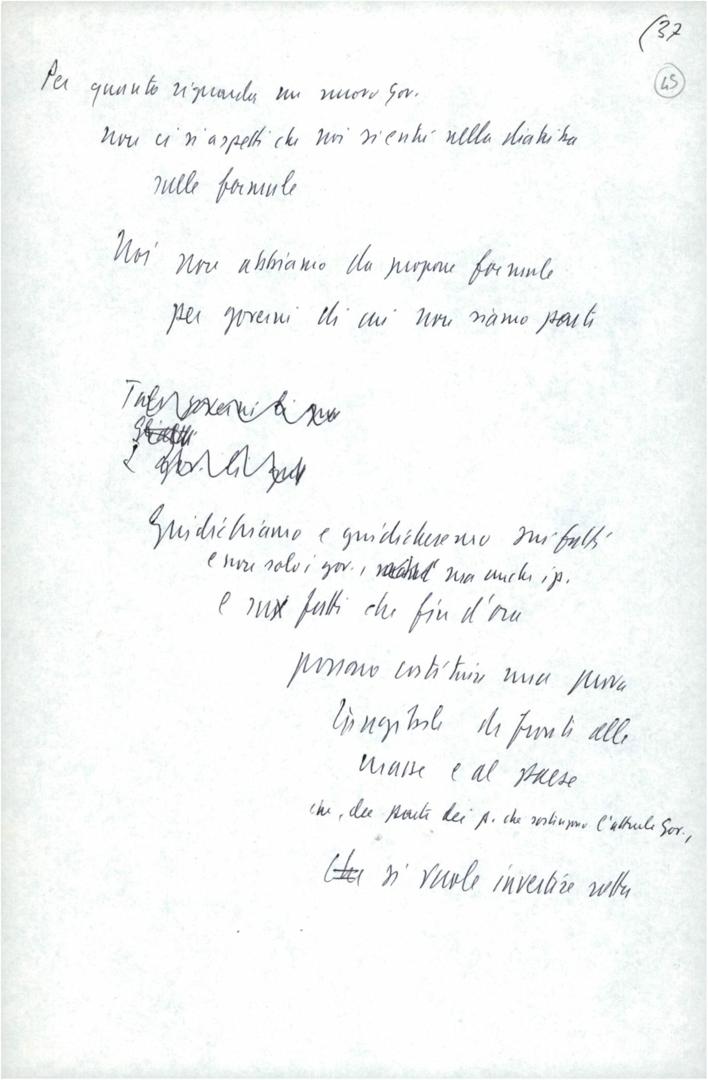 (37
45
Per quanto riguarda un nuovo Gov.
non ci si aspetti che noi si entri nella diatriba
sulle formule
Noi non abbiamo da proporre formule
per governi di cui non siamo parte
Giudichiamo e giudicheremo sui fatti
e non solo i gov., ma anche i p.
e sui fatti che fin d'ora
possono costituire una prova
tangibile di fronte alle
masse e al paese
che, da parte dei p. che sostengono l'attuale Gov.,
si vuole invertire rotta